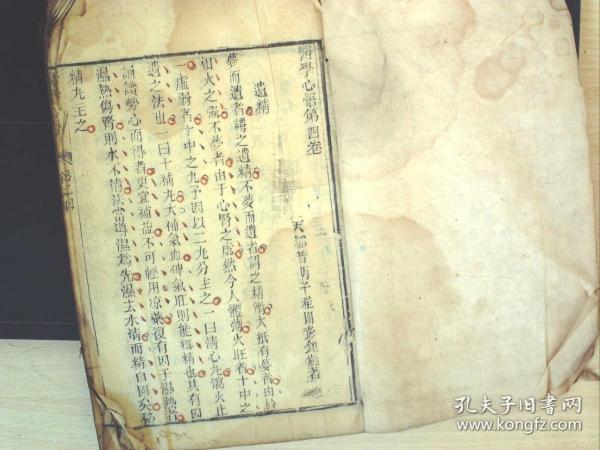 醫學心悟第四卷
天都普明子程國彭鍾齡著
遺精
夢而遺者謂之遺精不夢而遺者謂之精滑大抵有夢者由於
相火之強不夢者由于心腎之虛然今人體薄火旺者十中之
一虛弱者十中之九予因以二丸分主之一曰清心丸瀉火止
遺之法也一曰十補丸大補氣血俾氣旺則能攝精也其有因
誦讀勞心而得者更宜補益不可輕用凉藥復有因于濕熱者
濕熱傷腎則水不清法當導濕為先濕去水清而精自固矣秘
精丸主之
孔夫子旧書网
www.kongfz.com